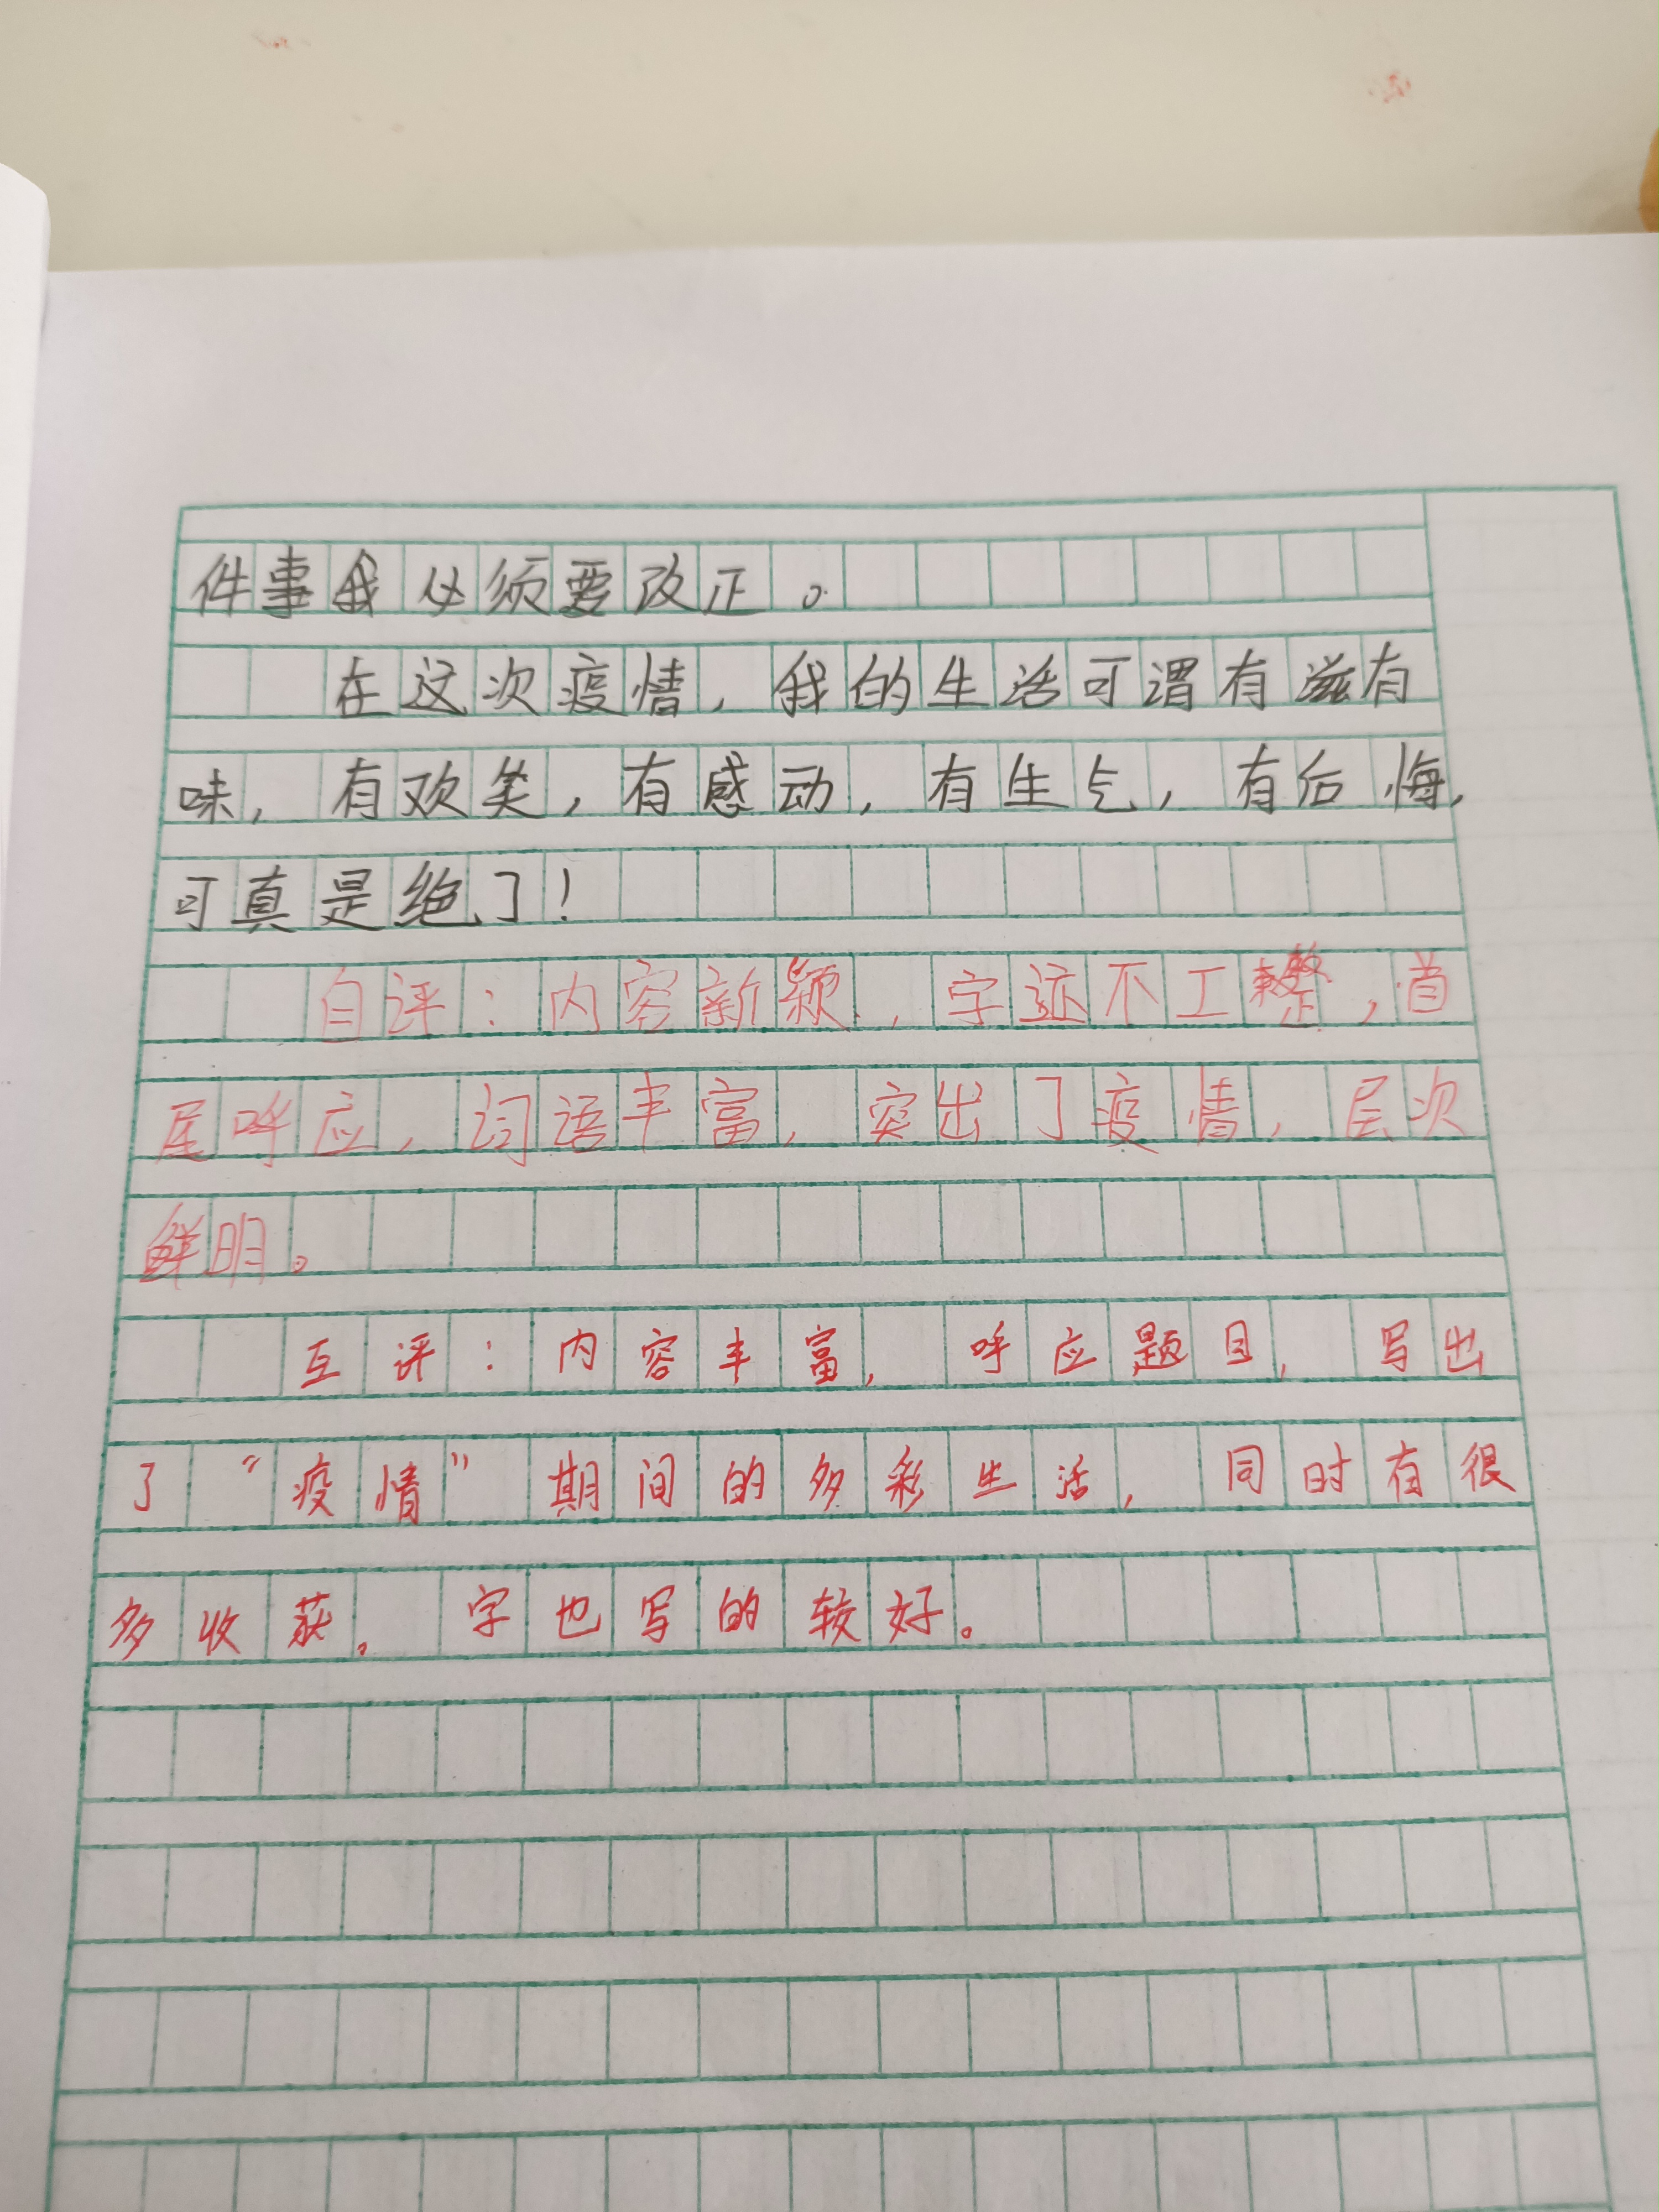 件事我必须要改正。
在这次疫情，我的生活可谓有滋有
味，有欢笑，有感动，有生气，有后悔，
可真是绝了！
自评：内容新颖，字迹不工整，首
尾呼应，词语丰富，突出了疫情，层次
鲜明。
互评：内容丰富，呼应题目，写出
了“疫情”期间的多彩生活，同时有很
多收获。字也写的较好。